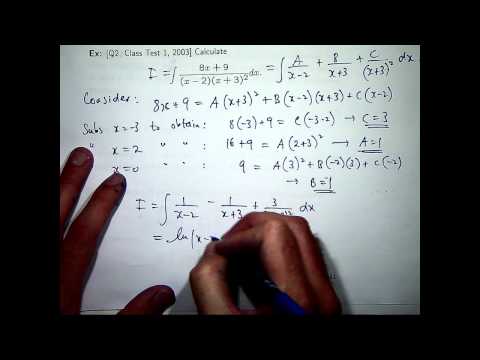 Ex: [Q2, Class Test 1, 2003] Calculate
I = ∫ (8x + 9)/((x − 2)(x + 3)²) dx. = ∫ A/(x−2) + B/(x+3) + C/(x+3)² dx
Consider: 8x+9 = A(x+3)² + B(x−2)(x+3) + C(x−2)
Subs x=−3 to obtain: 8(−3)+9 = C(−3−2) → C=3
" x=2 " " : 16+9 = A(2+3)² → A=1
" x=0 " " : 9 = A(3)² + B(−2)(3) + C(−2)
→ B=−1
I = ∫ 1/(x−2) − 1/(x+3) + 3/ dx
= ln|x−